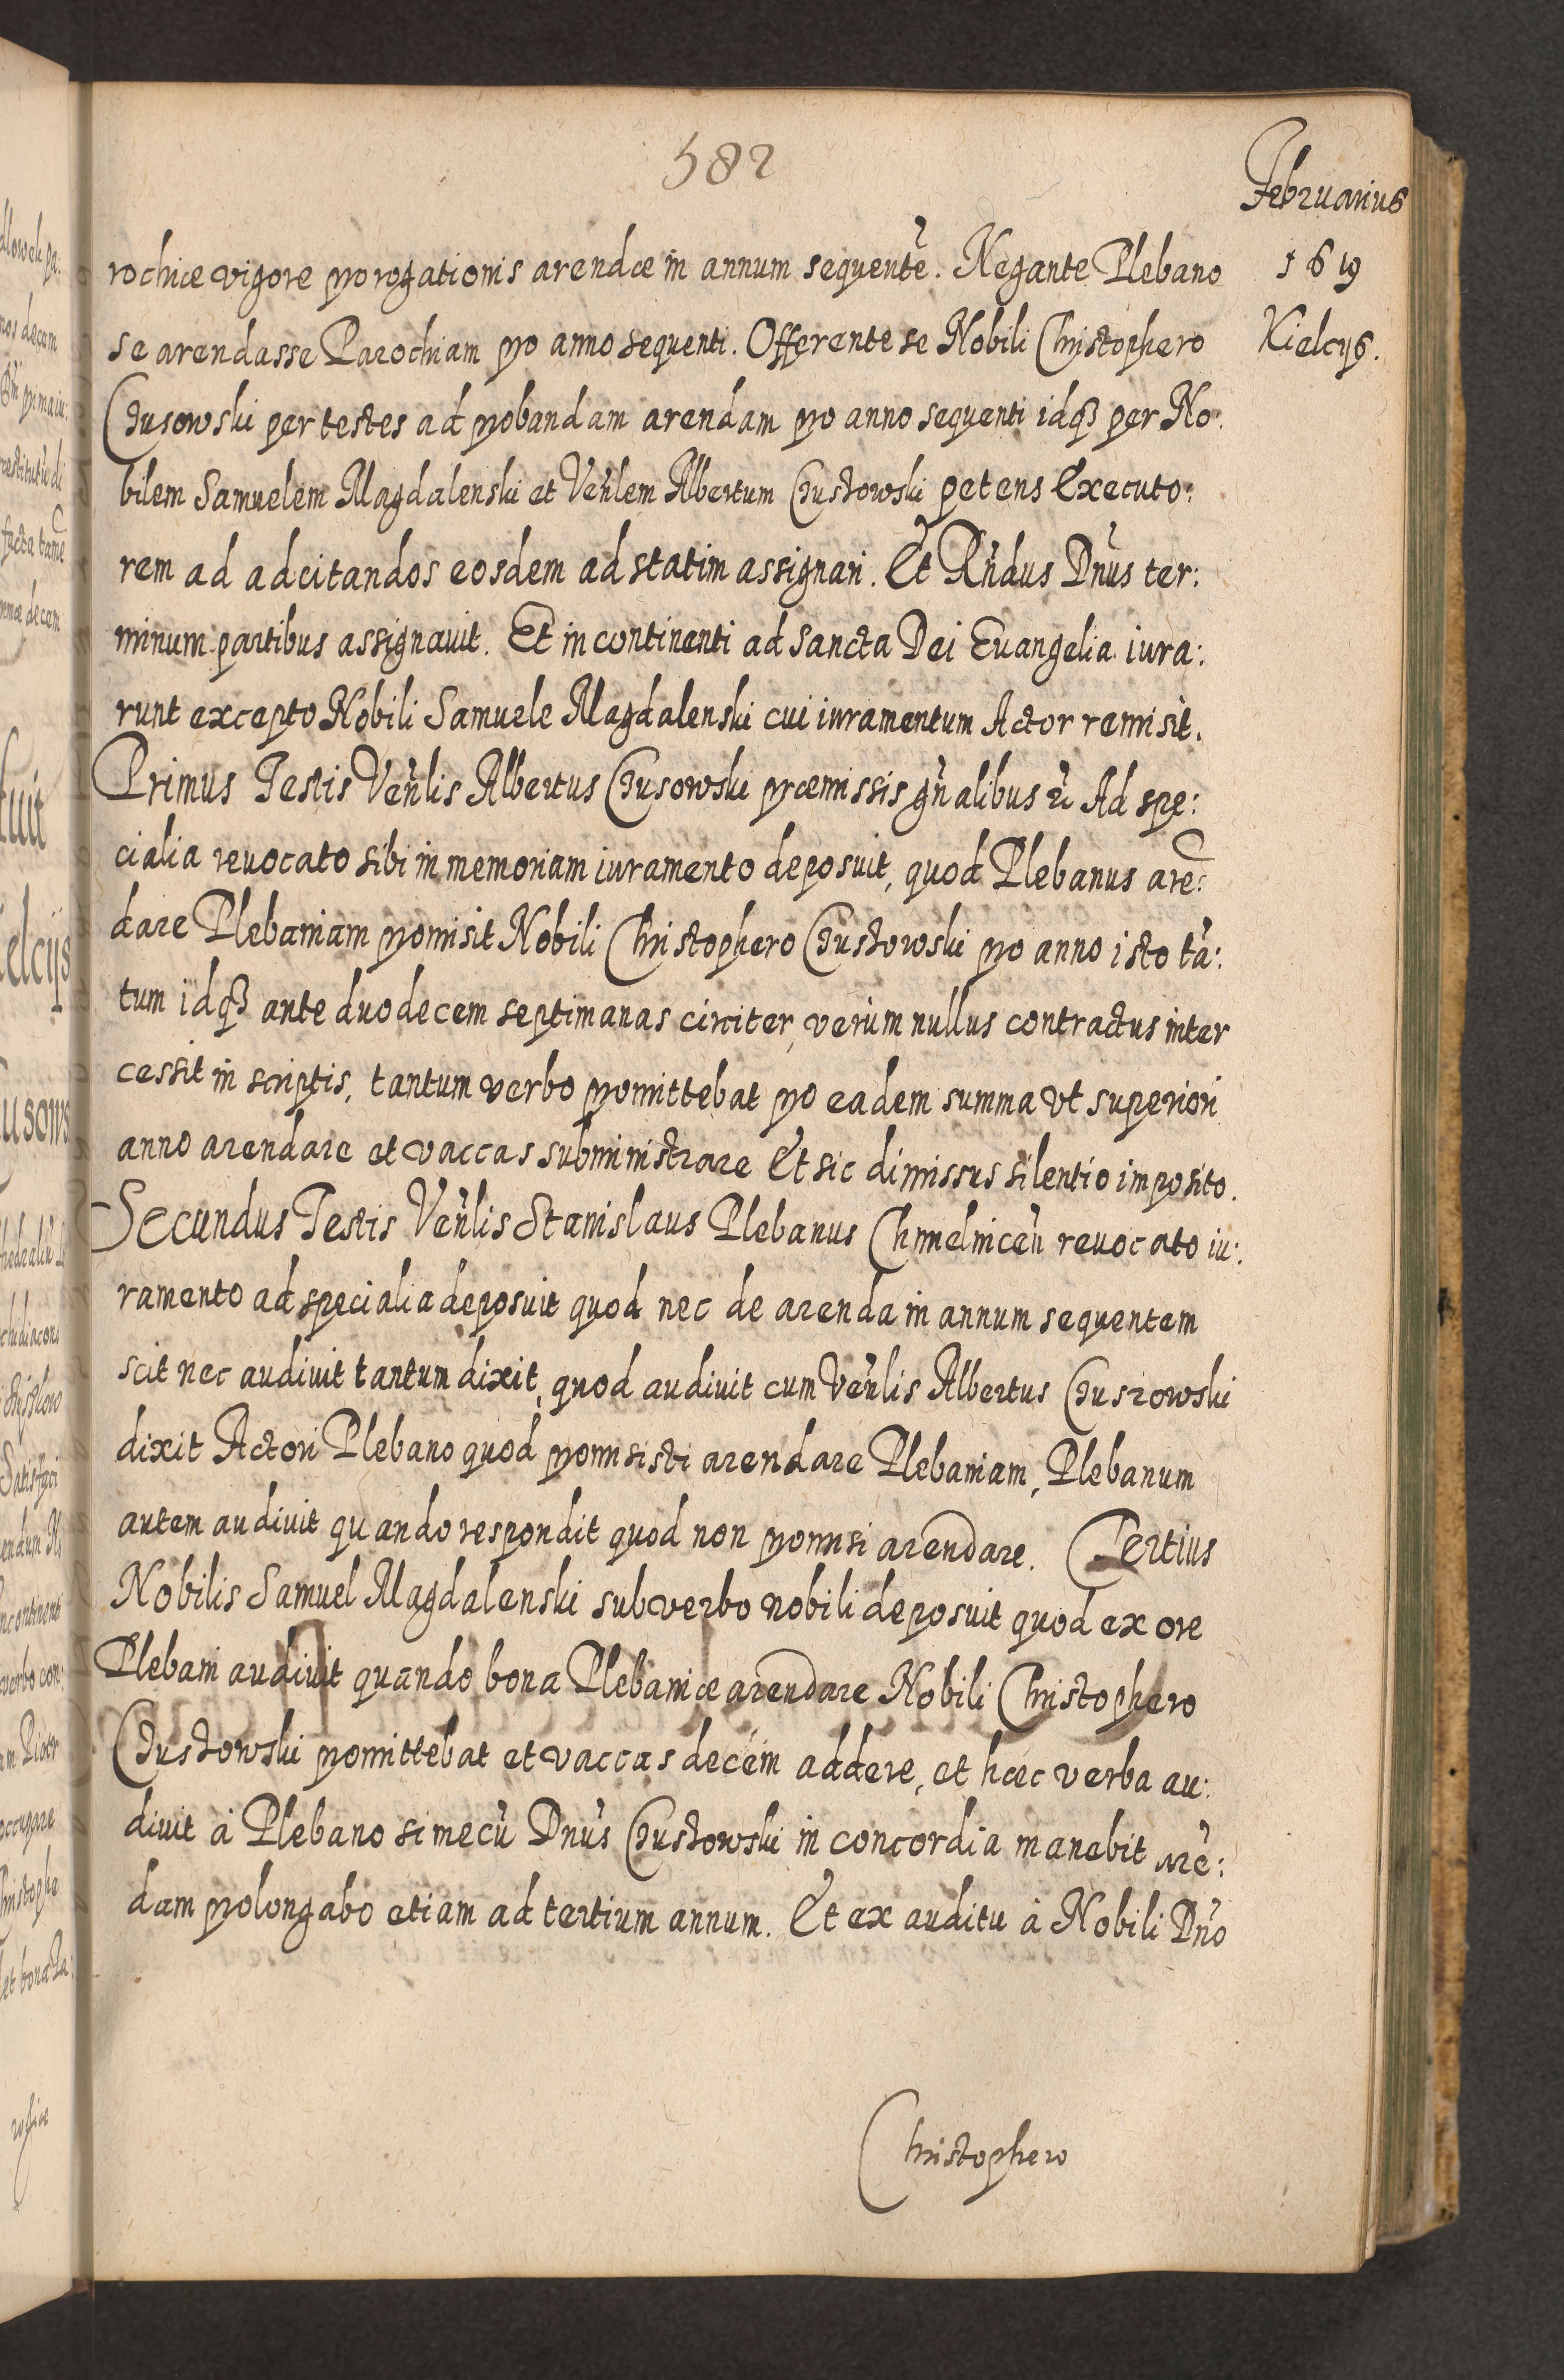 582
Februarius
1619
Kielcÿs.
rochiæ vigore prorogationis arendæ in annum sequentẽ. Negante Plebano
se arendasse Parochiam pro anno sequenti. Offerente se Nobili Christophero
Chusowski per testes ad probandam arendam pro anno sequenti idqȝ per No:
bilem Samuelem Magdalenski et Veñlem Albertum Chustowski petens Executo:
rem ad adcitandos eosdem ad statim assignari. Et Rñdus Dñus ter:
minum partibus assignauit. Et in continenti ad Sancta Dei Euangelia iura:
runt excepto Nobili Samuele Magdalenski cui iuramentum Actor remisit.
Primus Testis Veñlis Albertus Chusowski præmissis gñalibus &c Ad spe:
cialia reuocato sibi in memoriam iuramento deposuit, quod Plebanus arẽ:
dare Plebaniam promisit Nobili Christophero Chustowski pro anno isto tã:
tum idqȝ ante duodecem septimanas circiter, verùm nullus contractus inter
cessit in scriptis, tantum verbo promittebat pro eadem summa vt superiori
anno arendare et vaccas subministrare Et sic dimissus silentio imposito.
Secundus Testis Veñlis Stanislaus Plebanus Chmelniceñ reuocato iu:
ramento ad specialia deposuit quod nec de arenda in annum sequentem
scit nec audiuit tantum dixit, quod audiuit cum Veñlis Albertus Chustowski
dixit Actori Plebano quod promisisti arendare Plebaniam, Plebanum
autem audiuit quando respondit quod non promisi arendare. Tertius
Nobilis Samuel Magdalenski sub verbo nobili deposuit quod ex ore
Plebani audiuit quando bona Plebaniæ arendare Nobili Christophero
Chustowski promittebat et vaccas decem addere, et hæc verba au:
diuit à Plebano si mecũ Dñus Chustowski in concordia manebit arẽ:
dam prolongabo etiam ad tertium annum. Et ex auditu à Nobili Dño
Christophero